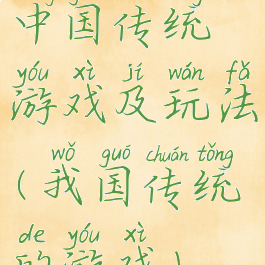 中国传统
yóu xì jí wán fǎ
游戏及玩法
wǒ guó chuán tǒng
(我国传统
de yóu xì
的游戏)